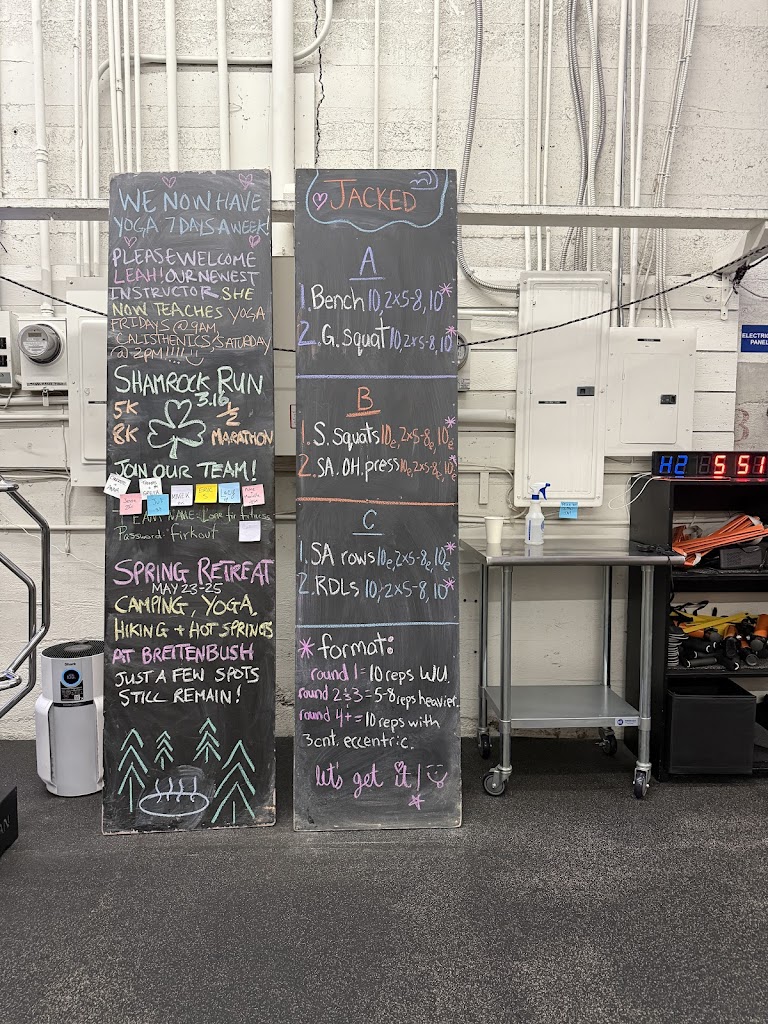 WE NOW HAVE
YOGA 7 DAYS A WEEK!
PLEASE WELCOME
LEAH! OUR NEWEST
INSTRUCTOR SHE
NOW TEACHES YOGA
FRIDAYS @ 9AM,
CALISTHENICS, SATURDAY
@ 2PM!!!!
SHAMROCK RUN
3.16
5K
1/2
8K
MARATHON
JOIN OUR TEAM!
TEAM NAME: Lone fir fitness
Password: firkout
SPRING RETREAT
MAY 23-25
CAMPING, YOGA,
HIKING + HOT SPRINGS
AT BREITENBUSH
JUST A FEW SPOTS
STILL REMAIN!
JACKED
A
1. Bench 10, 2x5-8, 10*
2. G. squat 10, 2x5-8, 10*
B
1. S. Squats 10e, 2x5-8e, 10e*
2. SA. OH. press 10e, 2x5-8e, 10e*
C
1. SA rows 10e, 2x5-8e, 10e*
2. RDLs 10, 2x5-8, 10*
* format:
round 1 = 10 reps WU.
round 2 & 3 = 5-8 reps heavier.
round 4+ = 10 reps with
3cnt. eccentric.
let's get it!
ELECTRIC
PANEL
H2 5 51
Shark